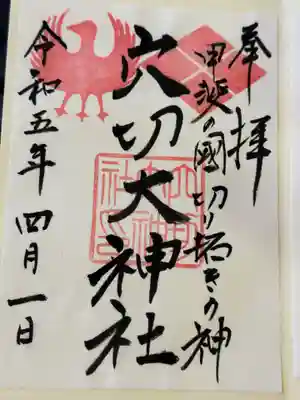 奉拝
甲斐の國切り拓きの神
穴切大神社
令和五年四月一日